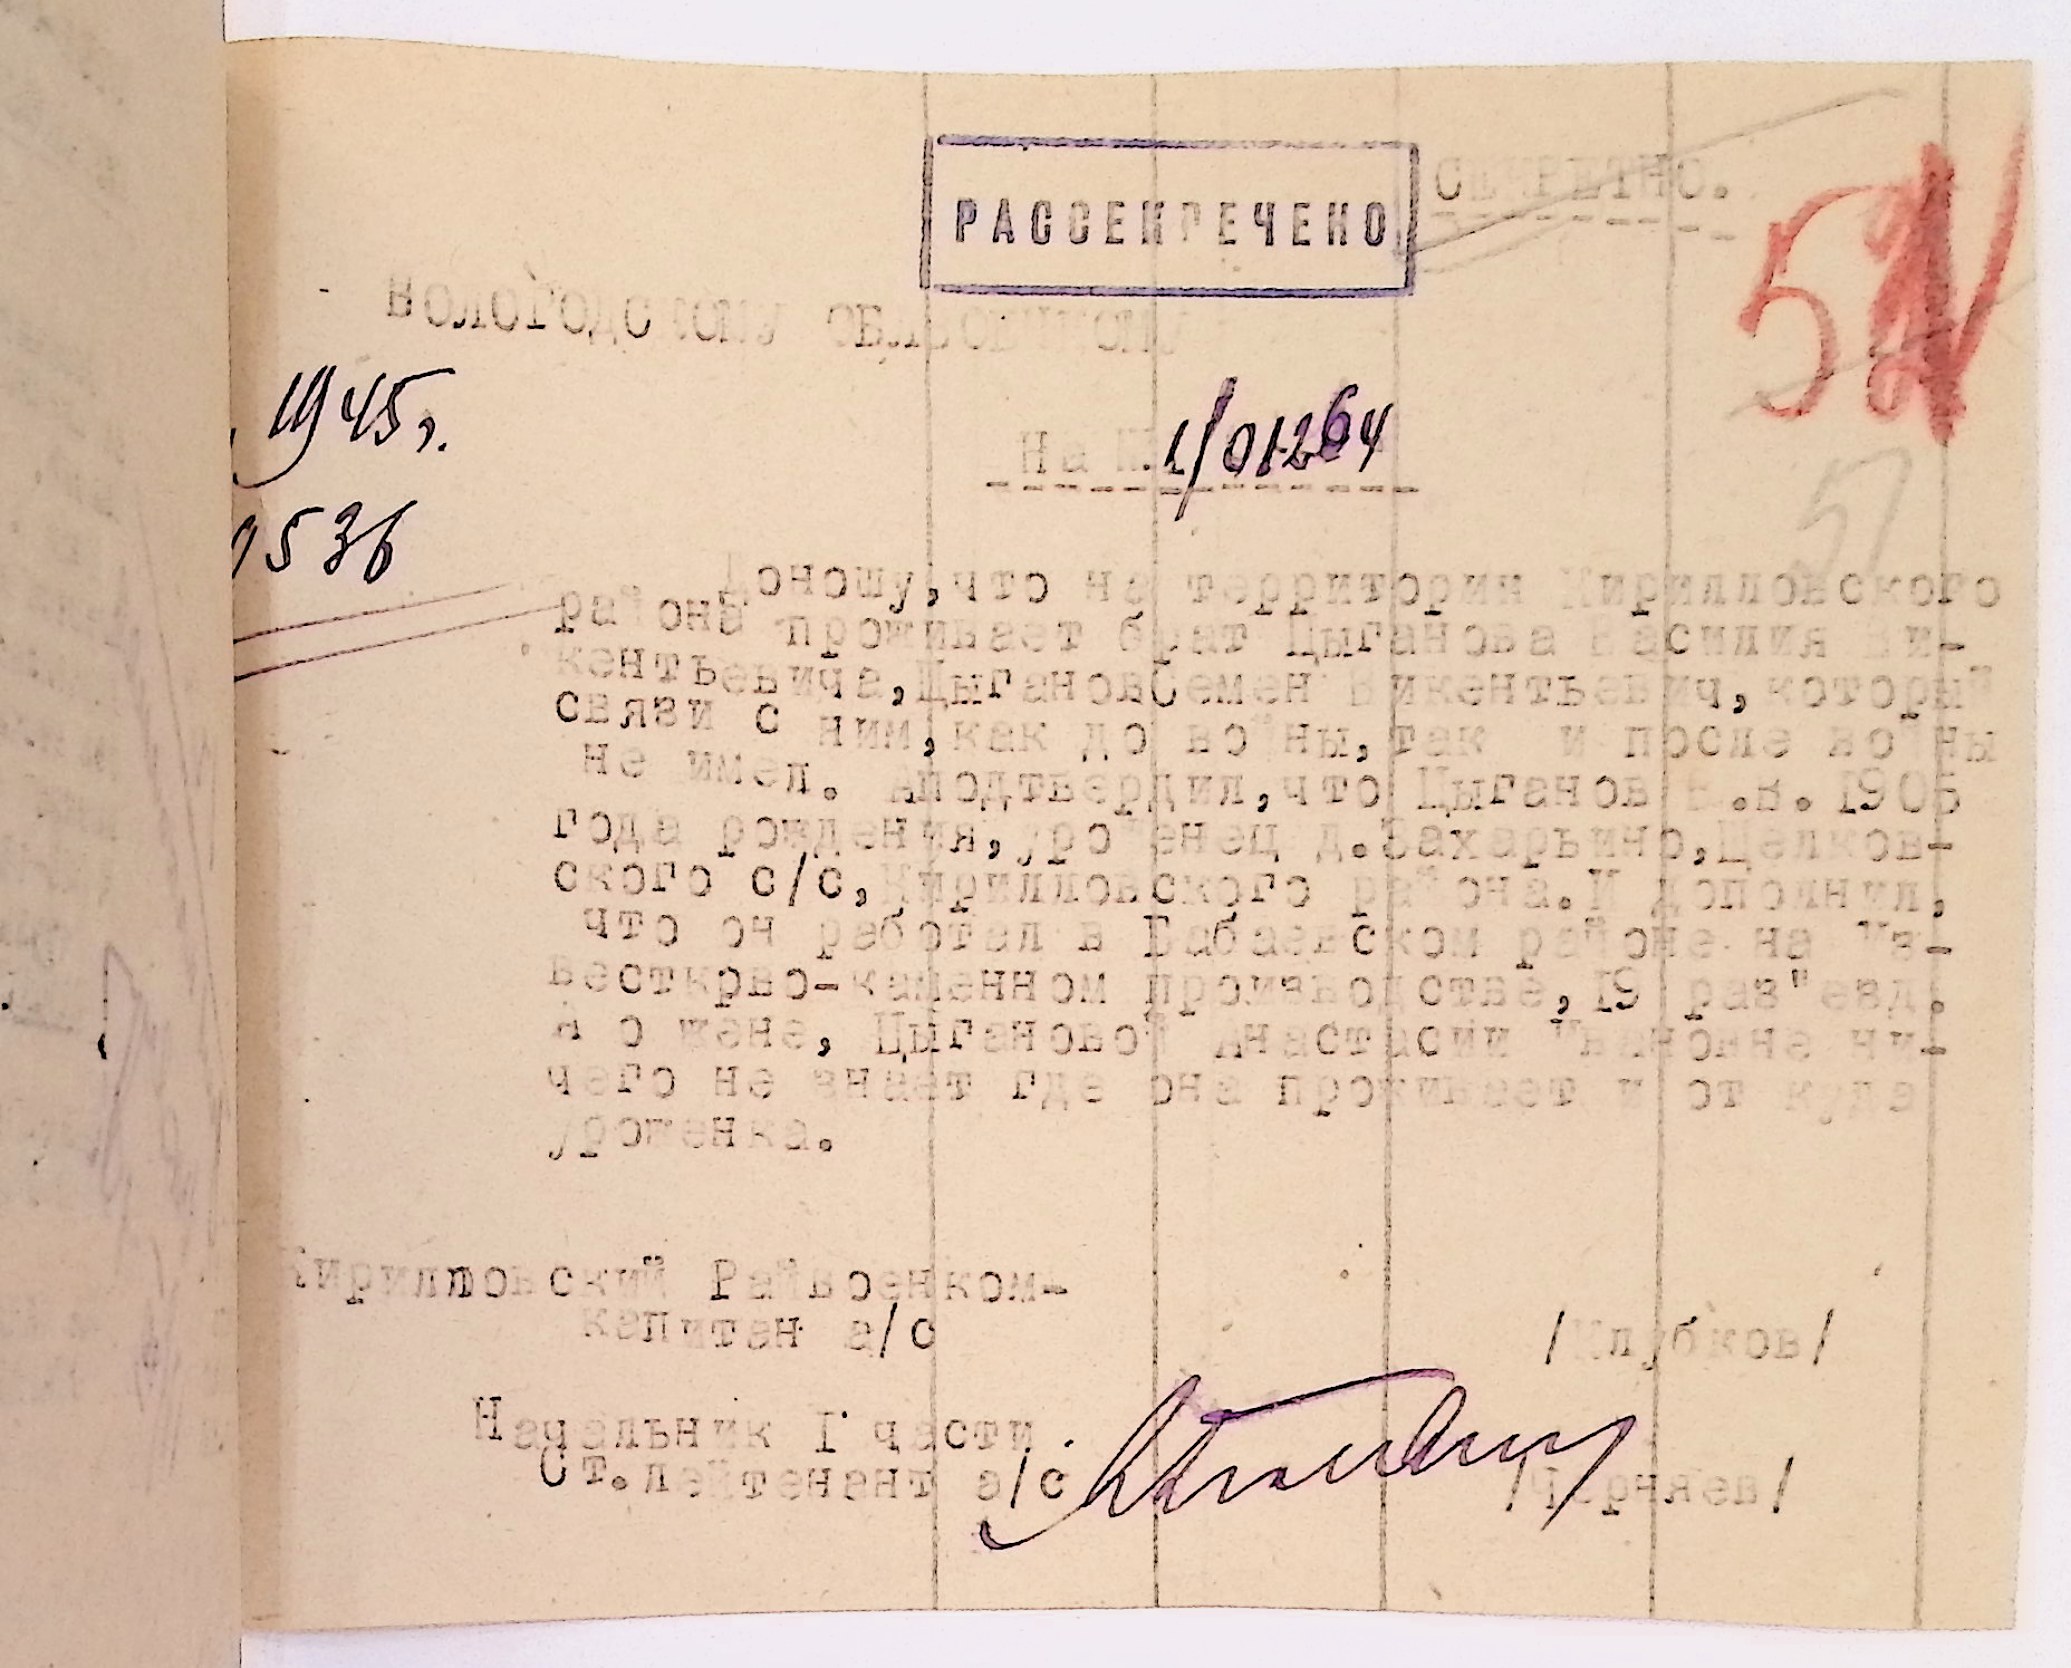 СЕКРЕТНО.
РАССЕКРЕЧЕНО
ВОЛОГОДСКОМУ ОБЛВОЕНКОМУ
1945г.
На №. 1/01264
0536
51
Доношу,что на территории Кирилловского
района проживает брат Цыганова Василия Ви-
кентьевича,ЦыгановСемен Викентьевич,который
связи с ним,как до войны,так и после войны
не имел. Аподтвердил,что Цыганов В.В. 1905
года рождения,уроженец д.Захарьино,Целков-
ского с/с,Кирилловского района.И дополнил,
что он работал в Бабаевском районе на Из-
вестково-каменном производстве,19 раз"езд.
А о жене, Цыгановой Анастасии Ивановне ни-
чего не знает где она проживает и от куда
уроженка.
Кирилловский Райвоенком-
капитан а/с /Клубков/
Начельник I части
Ст.лейтенант а/с /Черняев/